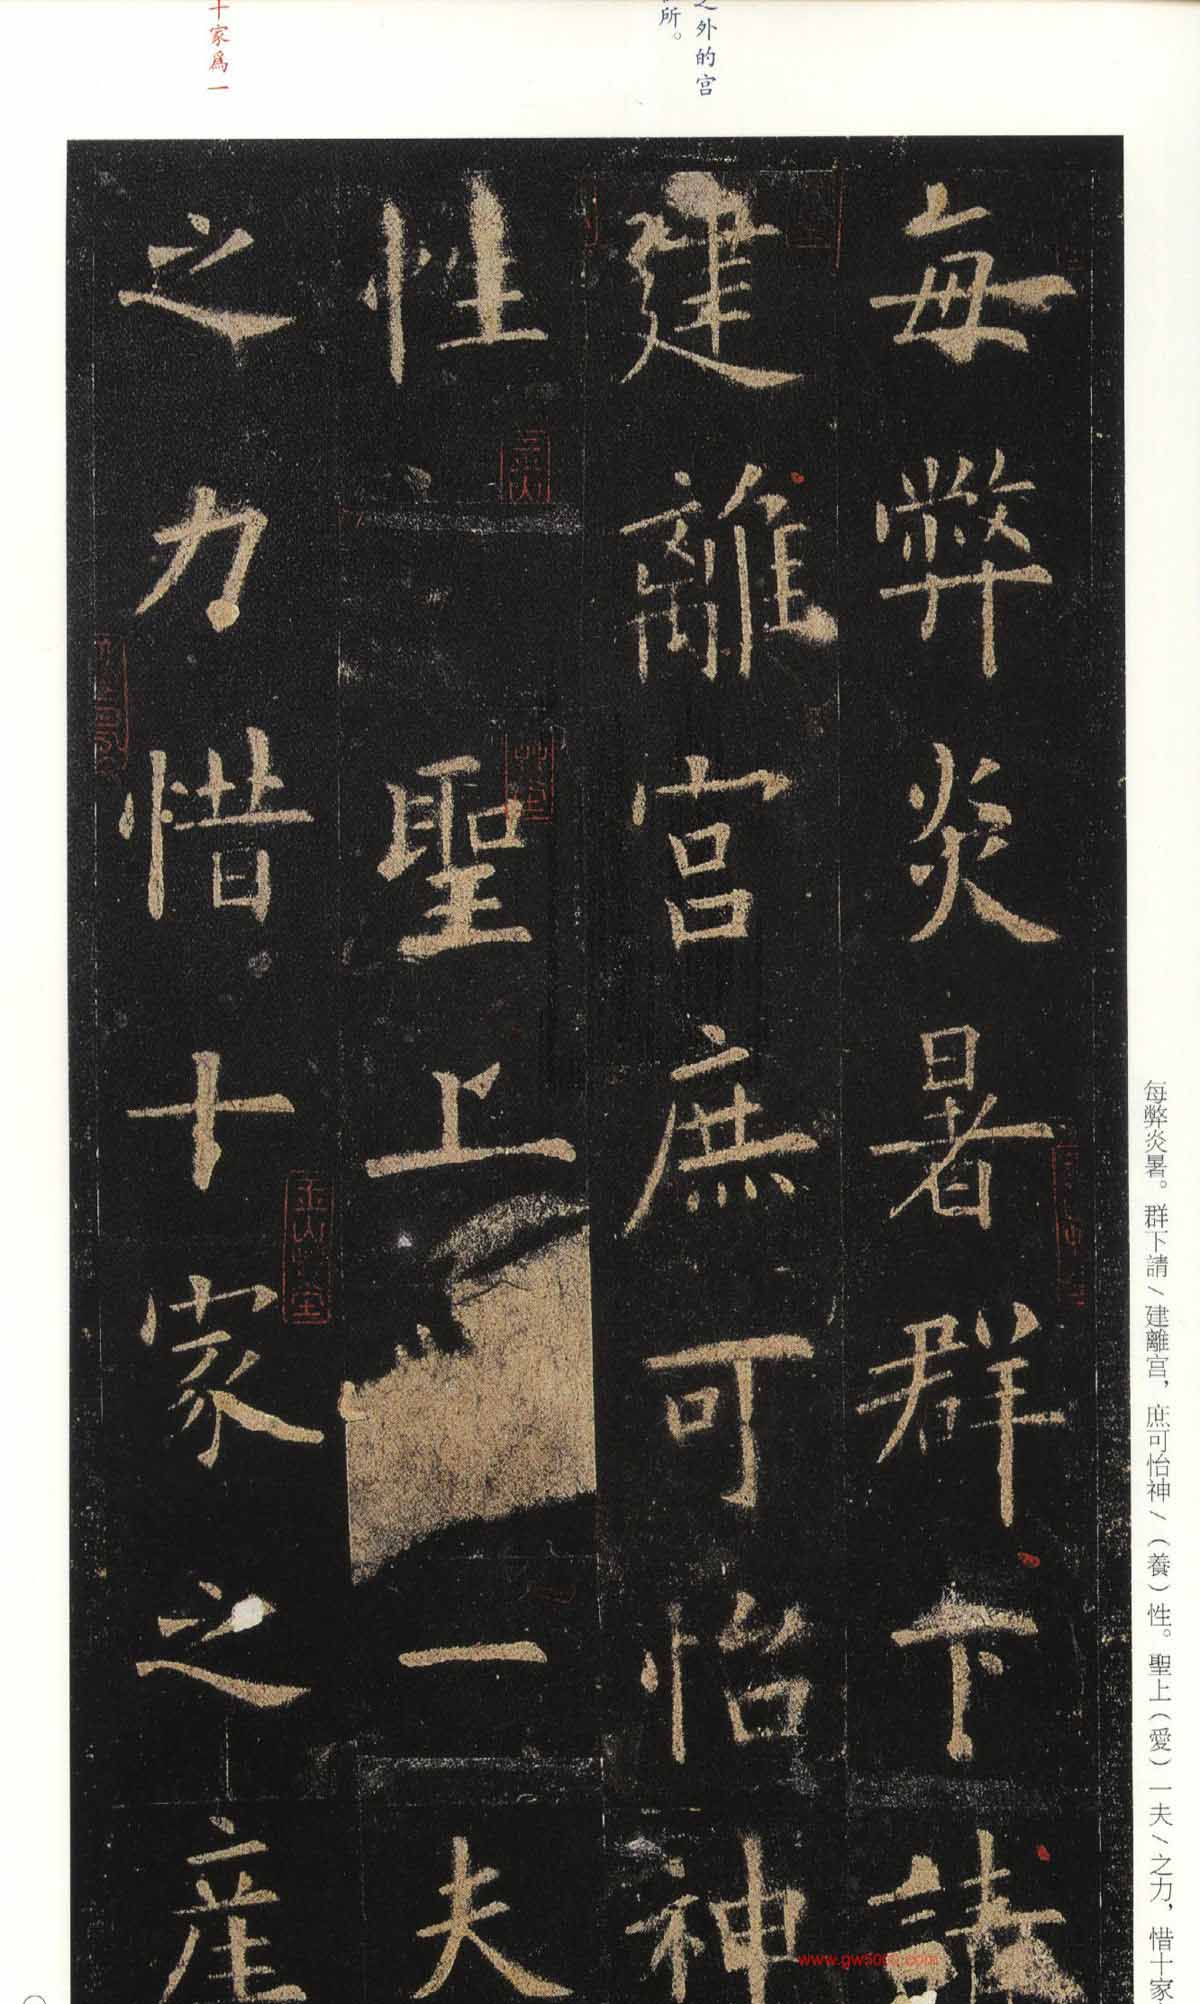 每弊炎暑群下請
建離宮庶可怡神
性聖上一夫
之力惜十家之產
每弊炎暑。群下請／建離宮，庶可怡神／（養）性。聖上（愛）一夫／之力，惜十家
之外的宮
所。
十家爲一
www.gw50